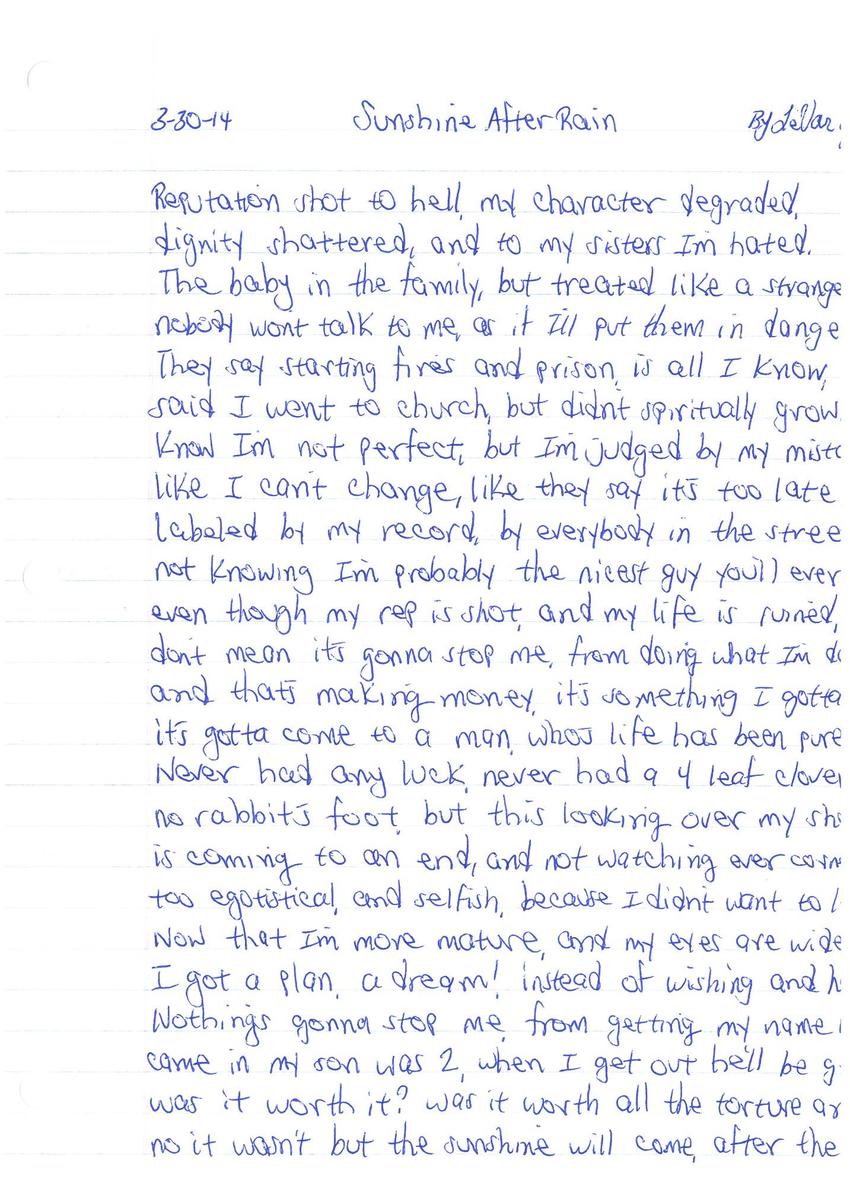 3-30-14 Sunshine After Rain By LeVar
Reputation shot to hell, my character degraded,
dignity shattered, and to my sisters I'm hated.
The baby in the family, but treated like a strange
nobody wont talk to me, as if I'll put them in dange
They say starting fires and prison, is all I know,
said I went to church, but didn't spiritually grow
Know I'm not perfect, but I'm judged by my mista
like I can't change, like they say it's too late
labeled by my record, by everybody in the stree
not knowing I'm probably the nicest guy you'll ever
even though my rep is shot, and my life is ruined,
don't mean it's gonna stop me, from doing what I'm do
and that's making money, it's something I gotta
it's gotta come to a man, who's life has been pure
Never had any luck, never had a 4 leaf clover
no rabbit's foot, but this looking over my sho
is coming to an end, and not watching ever corn
too egotistical, and selfish, because I didn't want to l
Now that I'm more mature, and my eyes are wide
I got a plan, a dream! instead of wishing and h
Nothings gonna stop me, from getting my name
came in my son was 2, when I get out he'll be g
was it worth it? was it worth all the torture an
no it wasn't but the sunshine will come, after the